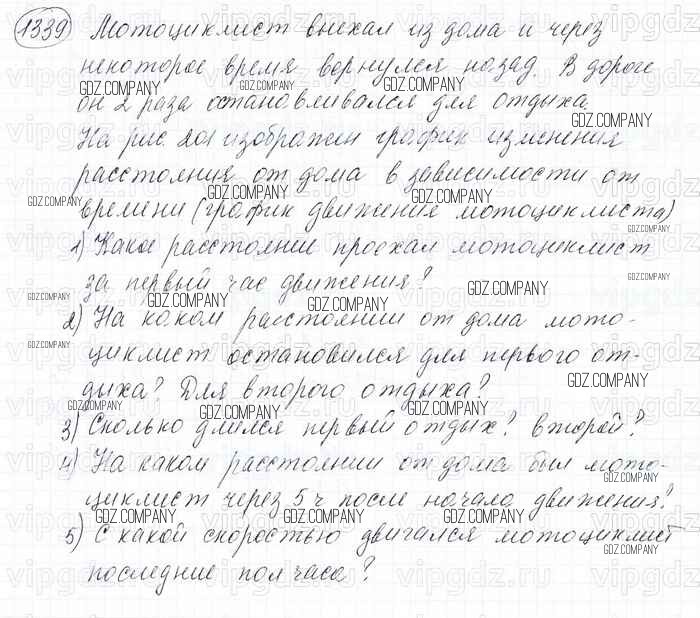 1339 Мотоциклист выехал из дома и через
некоторое время вернулся назад. В дороге
он 2 раза останавливался для отдыха.
На рис. 201 изображен график изменения
расстояния от дома в зависимости от
времени (график движения мотоциклиста)
1) Какое расстояние проехал мотоциклист
за первый час движения?
2) На каком расстоянии от дома мото-
циклист остановился для первого от-
дыха? Для второго отдыха?
3) Сколько длился первый отдых? второй?
4) На каком расстоянии от дома был мото-
циклист через 5 ч после начала движения?
5) С какой скоростью двигался мотоциклист
последние пол часа?